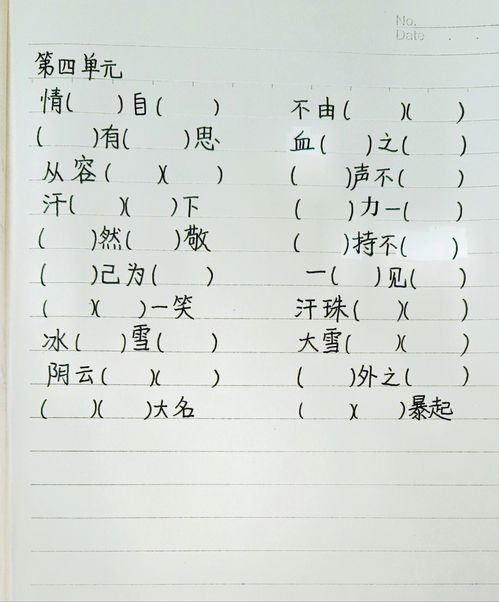 No.
Date
第四单元
情(  )自(  )  不由(  )(  )
(  )有(  )思  血(  )之(  )
从容(  )(  )  (  )声不(  )
汗(  )(  )下  (  )力一(  )
(  )然(  )敬  (  )持不(  )
(  )己为(  )  一(  )见(  )
(  )(  )一笑  汗珠(  )(  )
冰(  )雪(  )  大雪(  )(  )
阴云(  )(  )  (  )外之(  )
(  )(  )大名  (  )(  )暴起